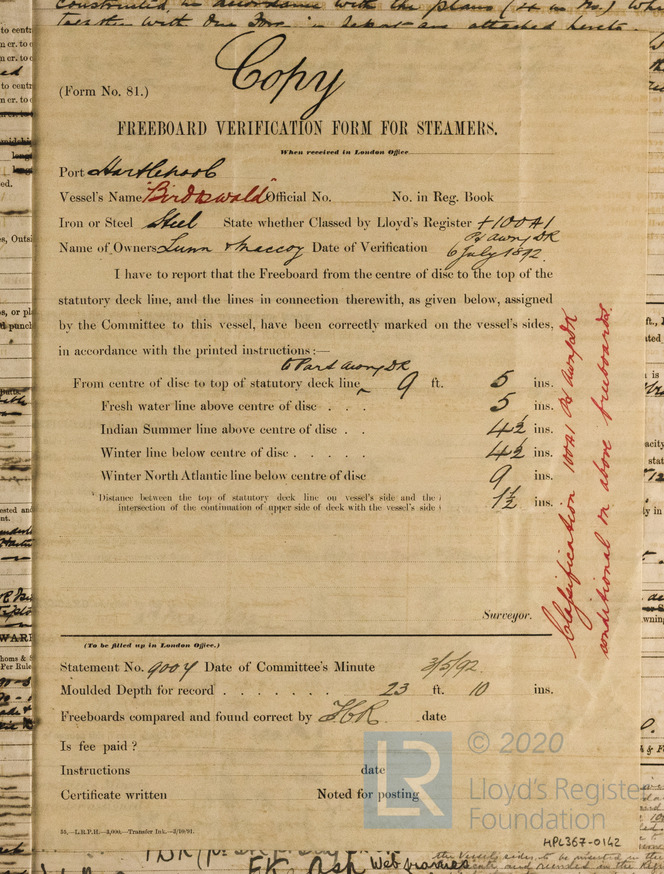 constructed in accordance with the plans (4 in No.)
together with One For in Report are attached hereto.
Copy
(Form No. 81.)
FREEBOARD VERIFICATION FORM FOR STEAMERS.
When received in London Office
Port Hartlepool
Vessel's Name "Birdoswald" Official No. No. in Reg. Book
Iron or Steel Steel State whether Classed by Lloyd's Register +100A1
Pt Awng DK
Name of Owners Lunn & Maccoy Date of Verification 6 July 1892.
I have to report that the Freeboard from the centre of disc to the top of the
statutory deck line, and the lines in connection therewith, as given below, assigned
by the Committee to this vessel, have been correctly marked on the vessel's sides,
in accordance with the printed instructions:—
to Part Awng DK
From centre of disc to top of statutory deck line 9 ft. 5 ins.
Fresh water line above centre of disc . . . 5 ins.
Indian Summer line above centre of disc . . 4½ ins.
Winter line below centre of disc . . . . . 4½ ins.
Winter North Atlantic line below centre of disc 9 ins.
Distance between the top of statutory deck line on vessel's side and the
intersection of the continuation of upper side of deck with the vessel's side 1½ ins.
Classification 100A1 Pt Awng DK
conditional on above freeboards.
Surveyor.
(To be filled up in London Office.)
Statement No. 9004 Date of Committee's Minute 3/5/92.
Moulded Depth for record . . . . . . . 23 ft. 10 ins.
Freeboards compared and found correct by date
Is fee paid ?
Instructions date
Certificate written Noted for posting
55,—L.R.P.H.—3,000,—Transfer Ink.—3/10/91.
LR
© 2020
Lloyd's Register
Foundation
HPL367-0142